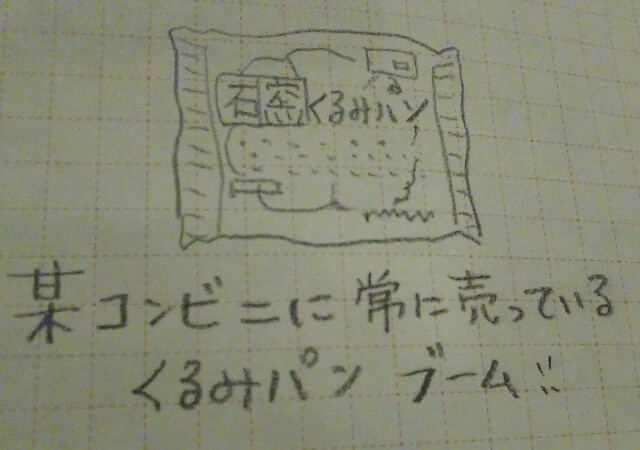 石窯くるみパン
某コンビニに常に売っている
くるみパン ブーム!!